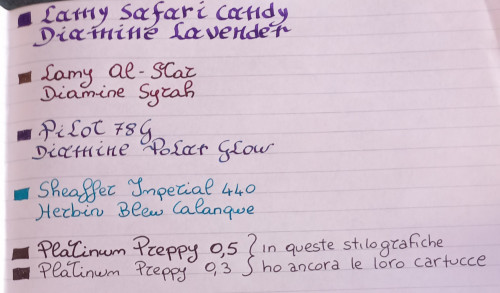 Lamy Safari Candy
Diamine Lavender
Lamy Al-Star
Diamine Syrah
Pilot 78G
Diamine Polar Glow
Sheaffer Imperial 440
Herbin Bleu Calanque
Platinum Preppy 0,5 } in queste stilografiche
Platinum Preppy 0,3 } ho ancora le loro cartucce